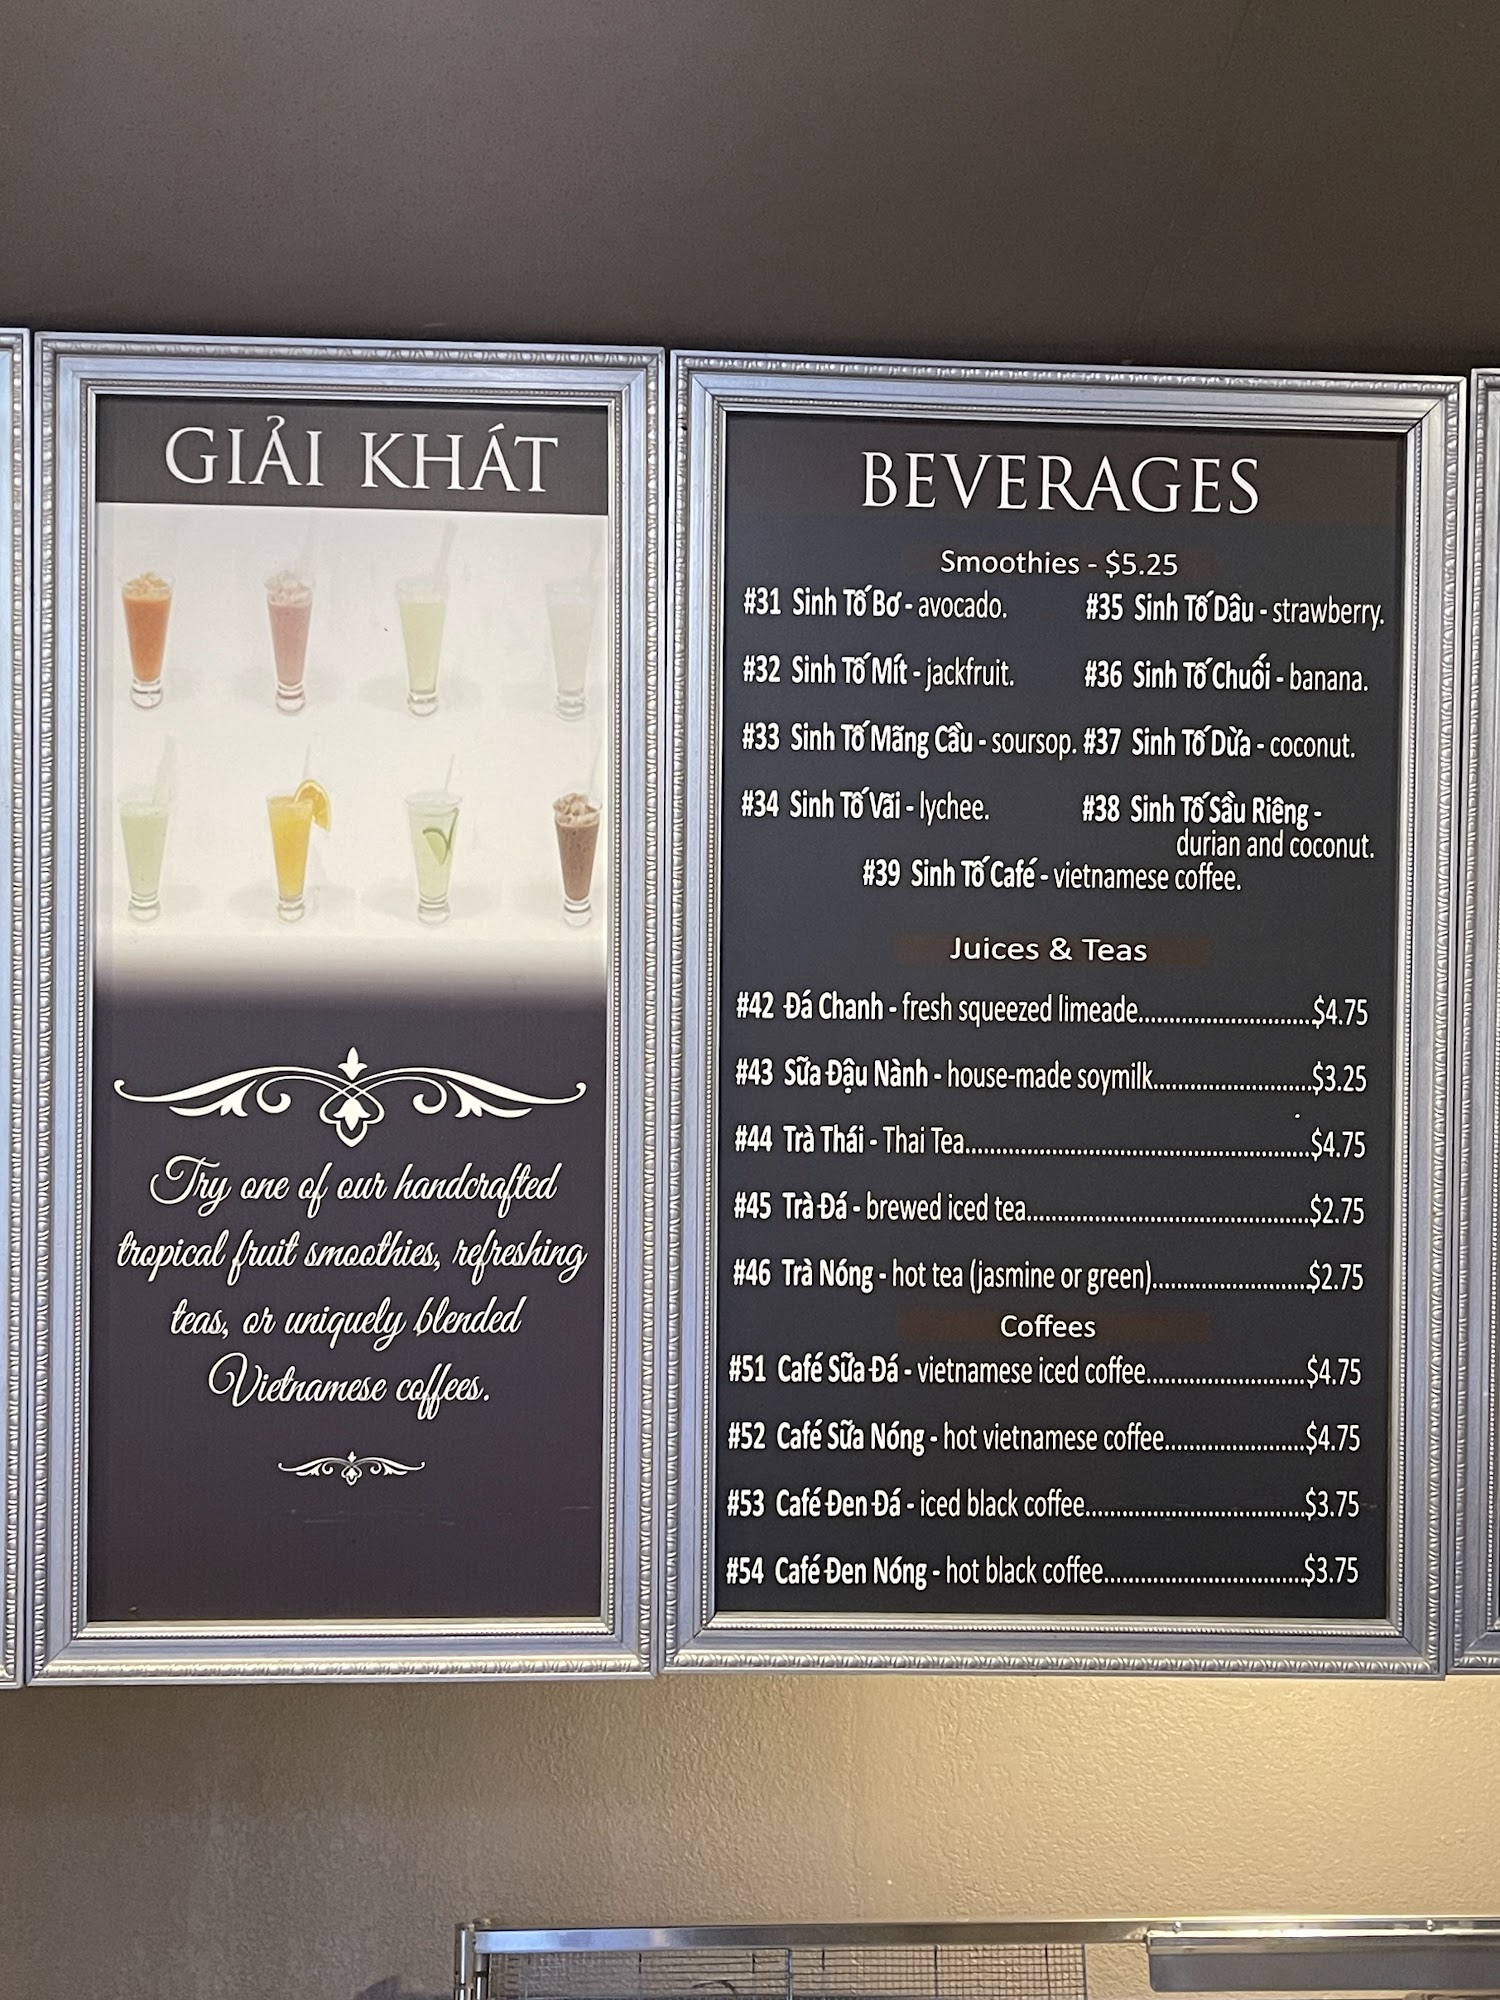 GIẢI KHÁT
Try one of our handcrafted
tropical fruit smoothies, refreshing
teas, or uniquely blended
Vietnamese coffees.
BEVERAGES
Smoothies - $5.25
#31 Sinh Tố Bơ - avocado.
#35 Sinh Tố Dâu - strawberry.
#32 Sinh Tố Mít - jackfruit.
#36 Sinh Tố Chuối - banana.
#33 Sinh Tố Mãng Cầu - soursop.
#37 Sinh Tố Dừa - coconut.
#34 Sinh Tố Vãi - lychee.
#38 Sinh Tố Sầu Riêng -
durian and coconut.
#39 Sinh Tố Café - vietnamese coffee.
Juices & Teas
#42 Đá Chanh - fresh squeezed limeade............................$4.75
#43 Sữa Đậu Nành - house-made soymilk..........................$3.25
#44 Trà Thái - Thai Tea.........................................................$4.75
#45 Trà Đá - brewed iced tea..............................................$2.75
#46 Trà Nóng - hot tea (jasmine or green).........................$2.75
Coffees
#51 Café Sữa Đá - vietnamese iced coffee..........................$4.75
#52 Café Sữa Nóng - hot vietnamese coffee.......................$4.75
#53 Café Đen Đá - iced black coffee....................................$3.75
#54 Café Đen Nóng - hot black coffee.................................$3.75